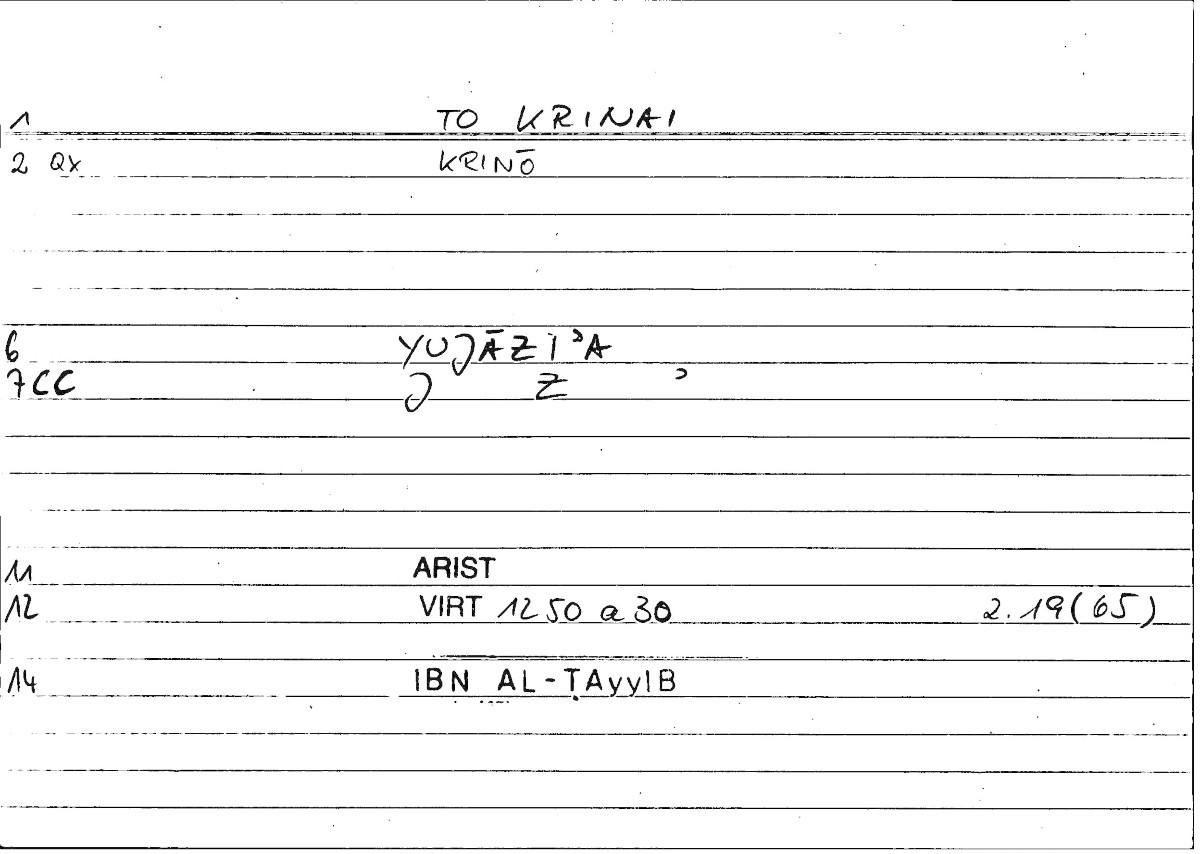 1 TO KRINAI
2 QX KRINŌ
6 YUJĀZI᾿A
7CC J Z ᾿
11 ARIST
12 VIRT 1250 a 30 2.19(65)
14 IBN AL-ṬAyyIB